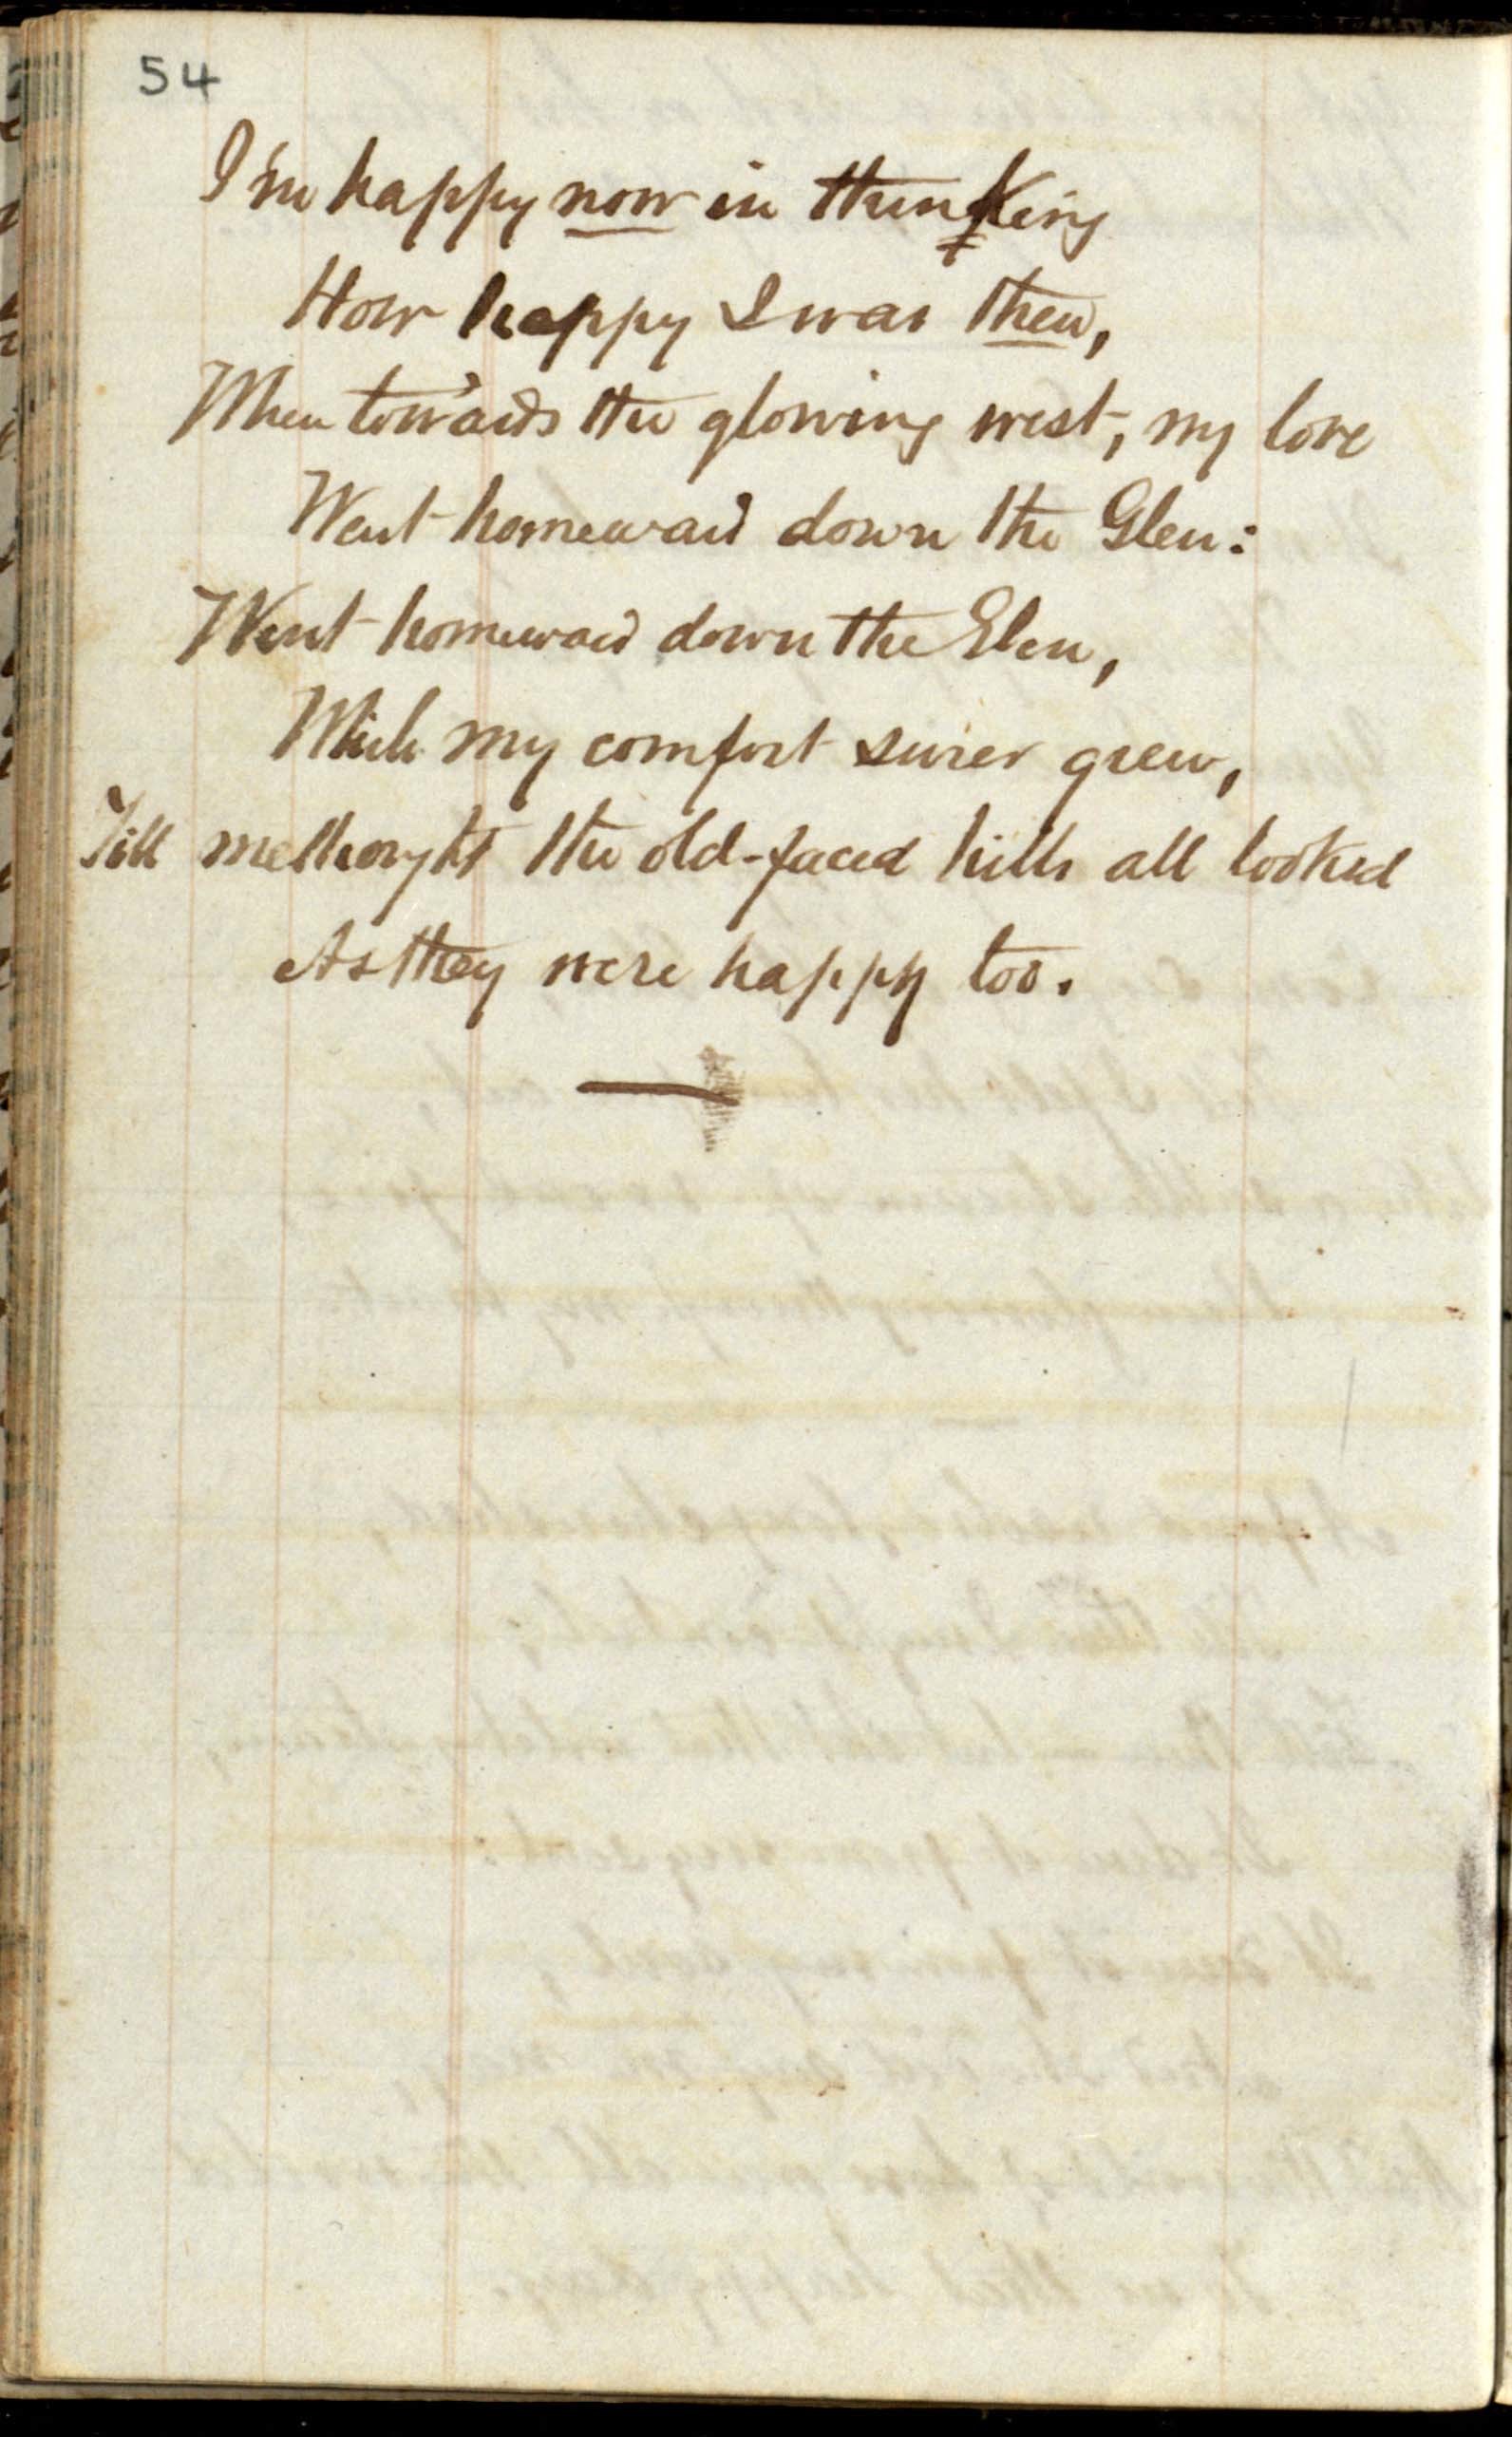 54
I'm happy now in thinking
How happy I was then,
When towards the glowing west, my love
Went homeward down the Glen:
Went homeward down the Glen,
While my comfort surer grew,
Till methought the old-faced hills all looked
As they were happy too.